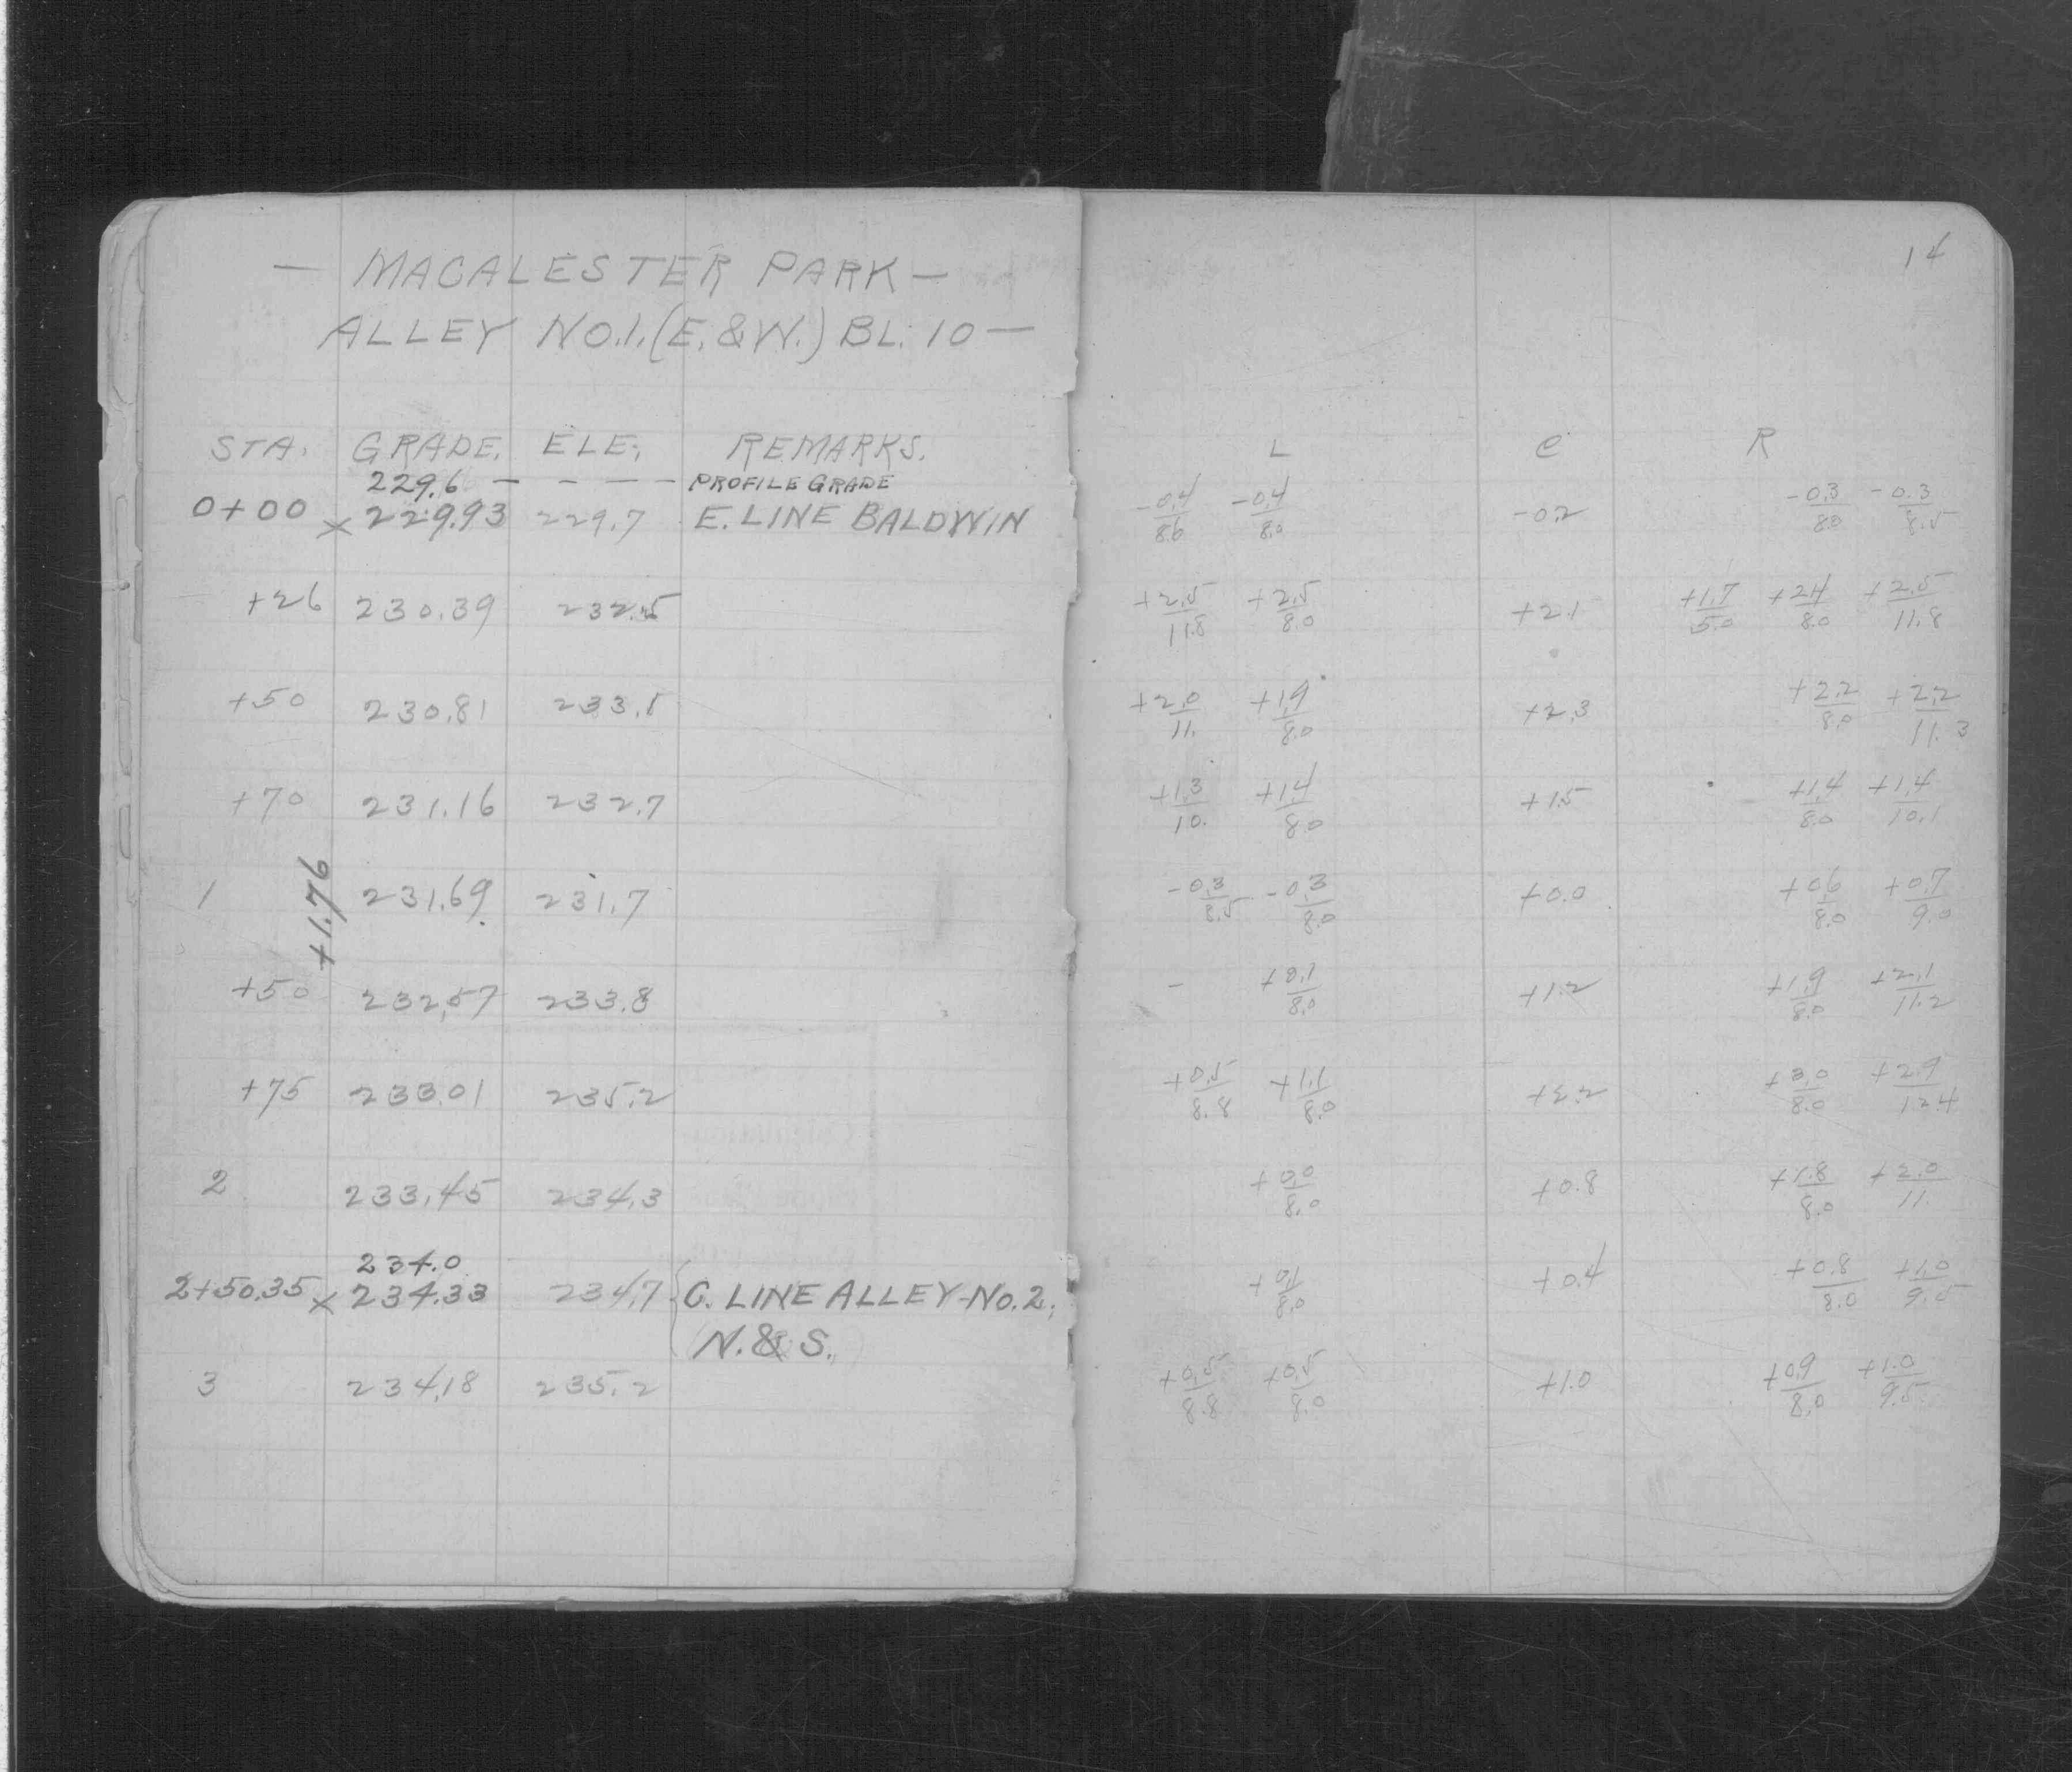 — MACALESTER PARK —
ALLEY NO.1. (E. & W.) BL. 10 —
STA. GRADE. ELE. REMARKS.
229.6 — — — — PROFILE GRADE
0+00 x 229.93 229.7 E. LINE BALDWIN
+26 230.39 232.5
+50 230.81 233.1
+70 231.16 232.7
1 231.69 231.7
+1.76
+50 232.57 233.8
+75 233.01 235.2
2 233.45 234.3
234.0
2+50.35 x 234.33 234.7 { C. LINE ALLEY-No. 2.
N. & S.
3 234.18 235.2
14
L C R
-0.4/8.6 -0.4/8.0 -0.2 -0.3/8.0 -0.3/8.5
+2.5/11.8 +2.5/8.0 +2.1 +1.7/5.0 +2.4/8.0 +2.5/11.8
+2.0/11. +1.9/8.0 +2.3 +2.2/8.0 +2.2/11.3
+1.3/10. +1.4/8.0 +1.5 +1.4/8.0 +1.4/10.1
-0.3/8.5 -0.3/8.0 +0.0 +0.6/8.0 +0.7/9.0
- +0.1/8.0 +1.2 +1.9/8.0 +2.1/11.2
+0.5/8.8 +1.1/8.0 +2.2 +3.0/8.0 +2.9/12.4
+0.0/8.0 +0.8 +1.8/8.0 +2.0/11.
+0.1/8.0 +0.4 +0.8/8.0 +1.0/9.5
+0.5/8.8 +0.5/8.0 +1.0 +0.9/8.0 +1.0/9.5